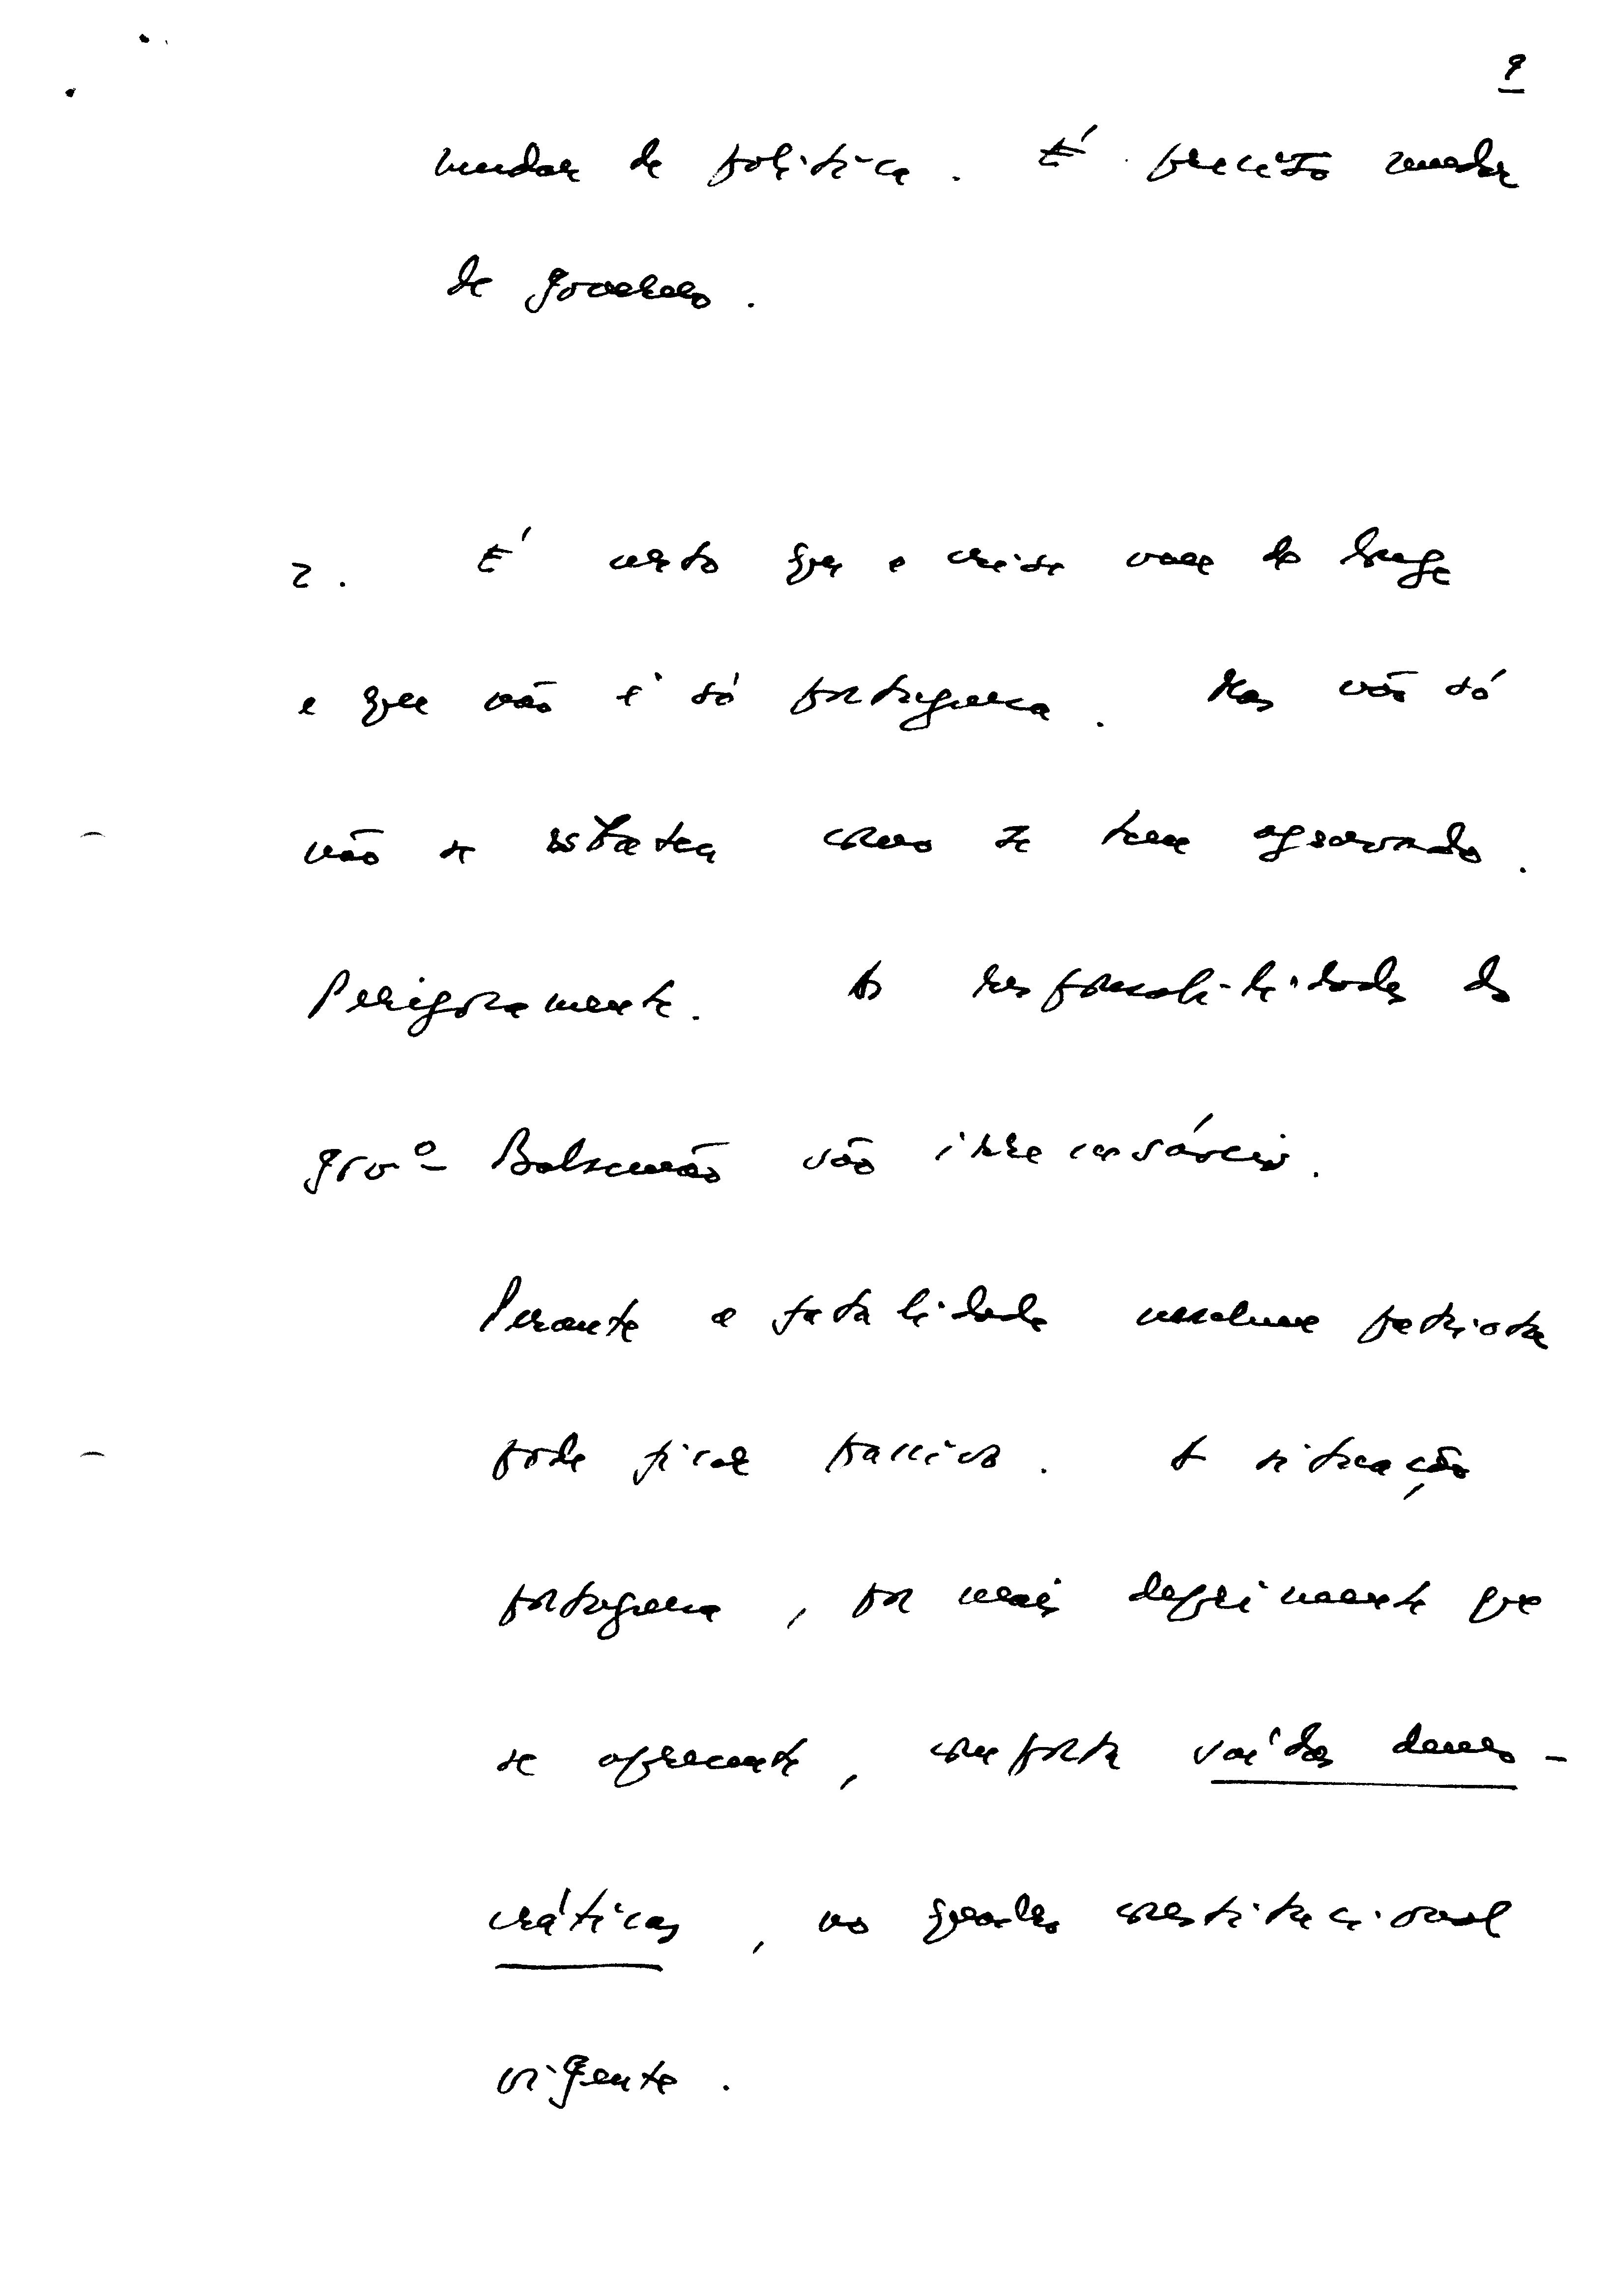 9
mudar de política. É preciso mudar
de governo.
2. É certo que a crise vem de longe
e que não é só portuguesa. Mas não só
não se  como se tem agravado.
Perigosamente. As responsabilidades do
govº Balsemão são irrecusáveis.
Perante a fatalidade nenhum patriota
pode ficar passivo. A situação
portuguesa, por mais deprimente que
se apresente, comporta saídas demo-
cráticas, no quadro constitucional
vigente.